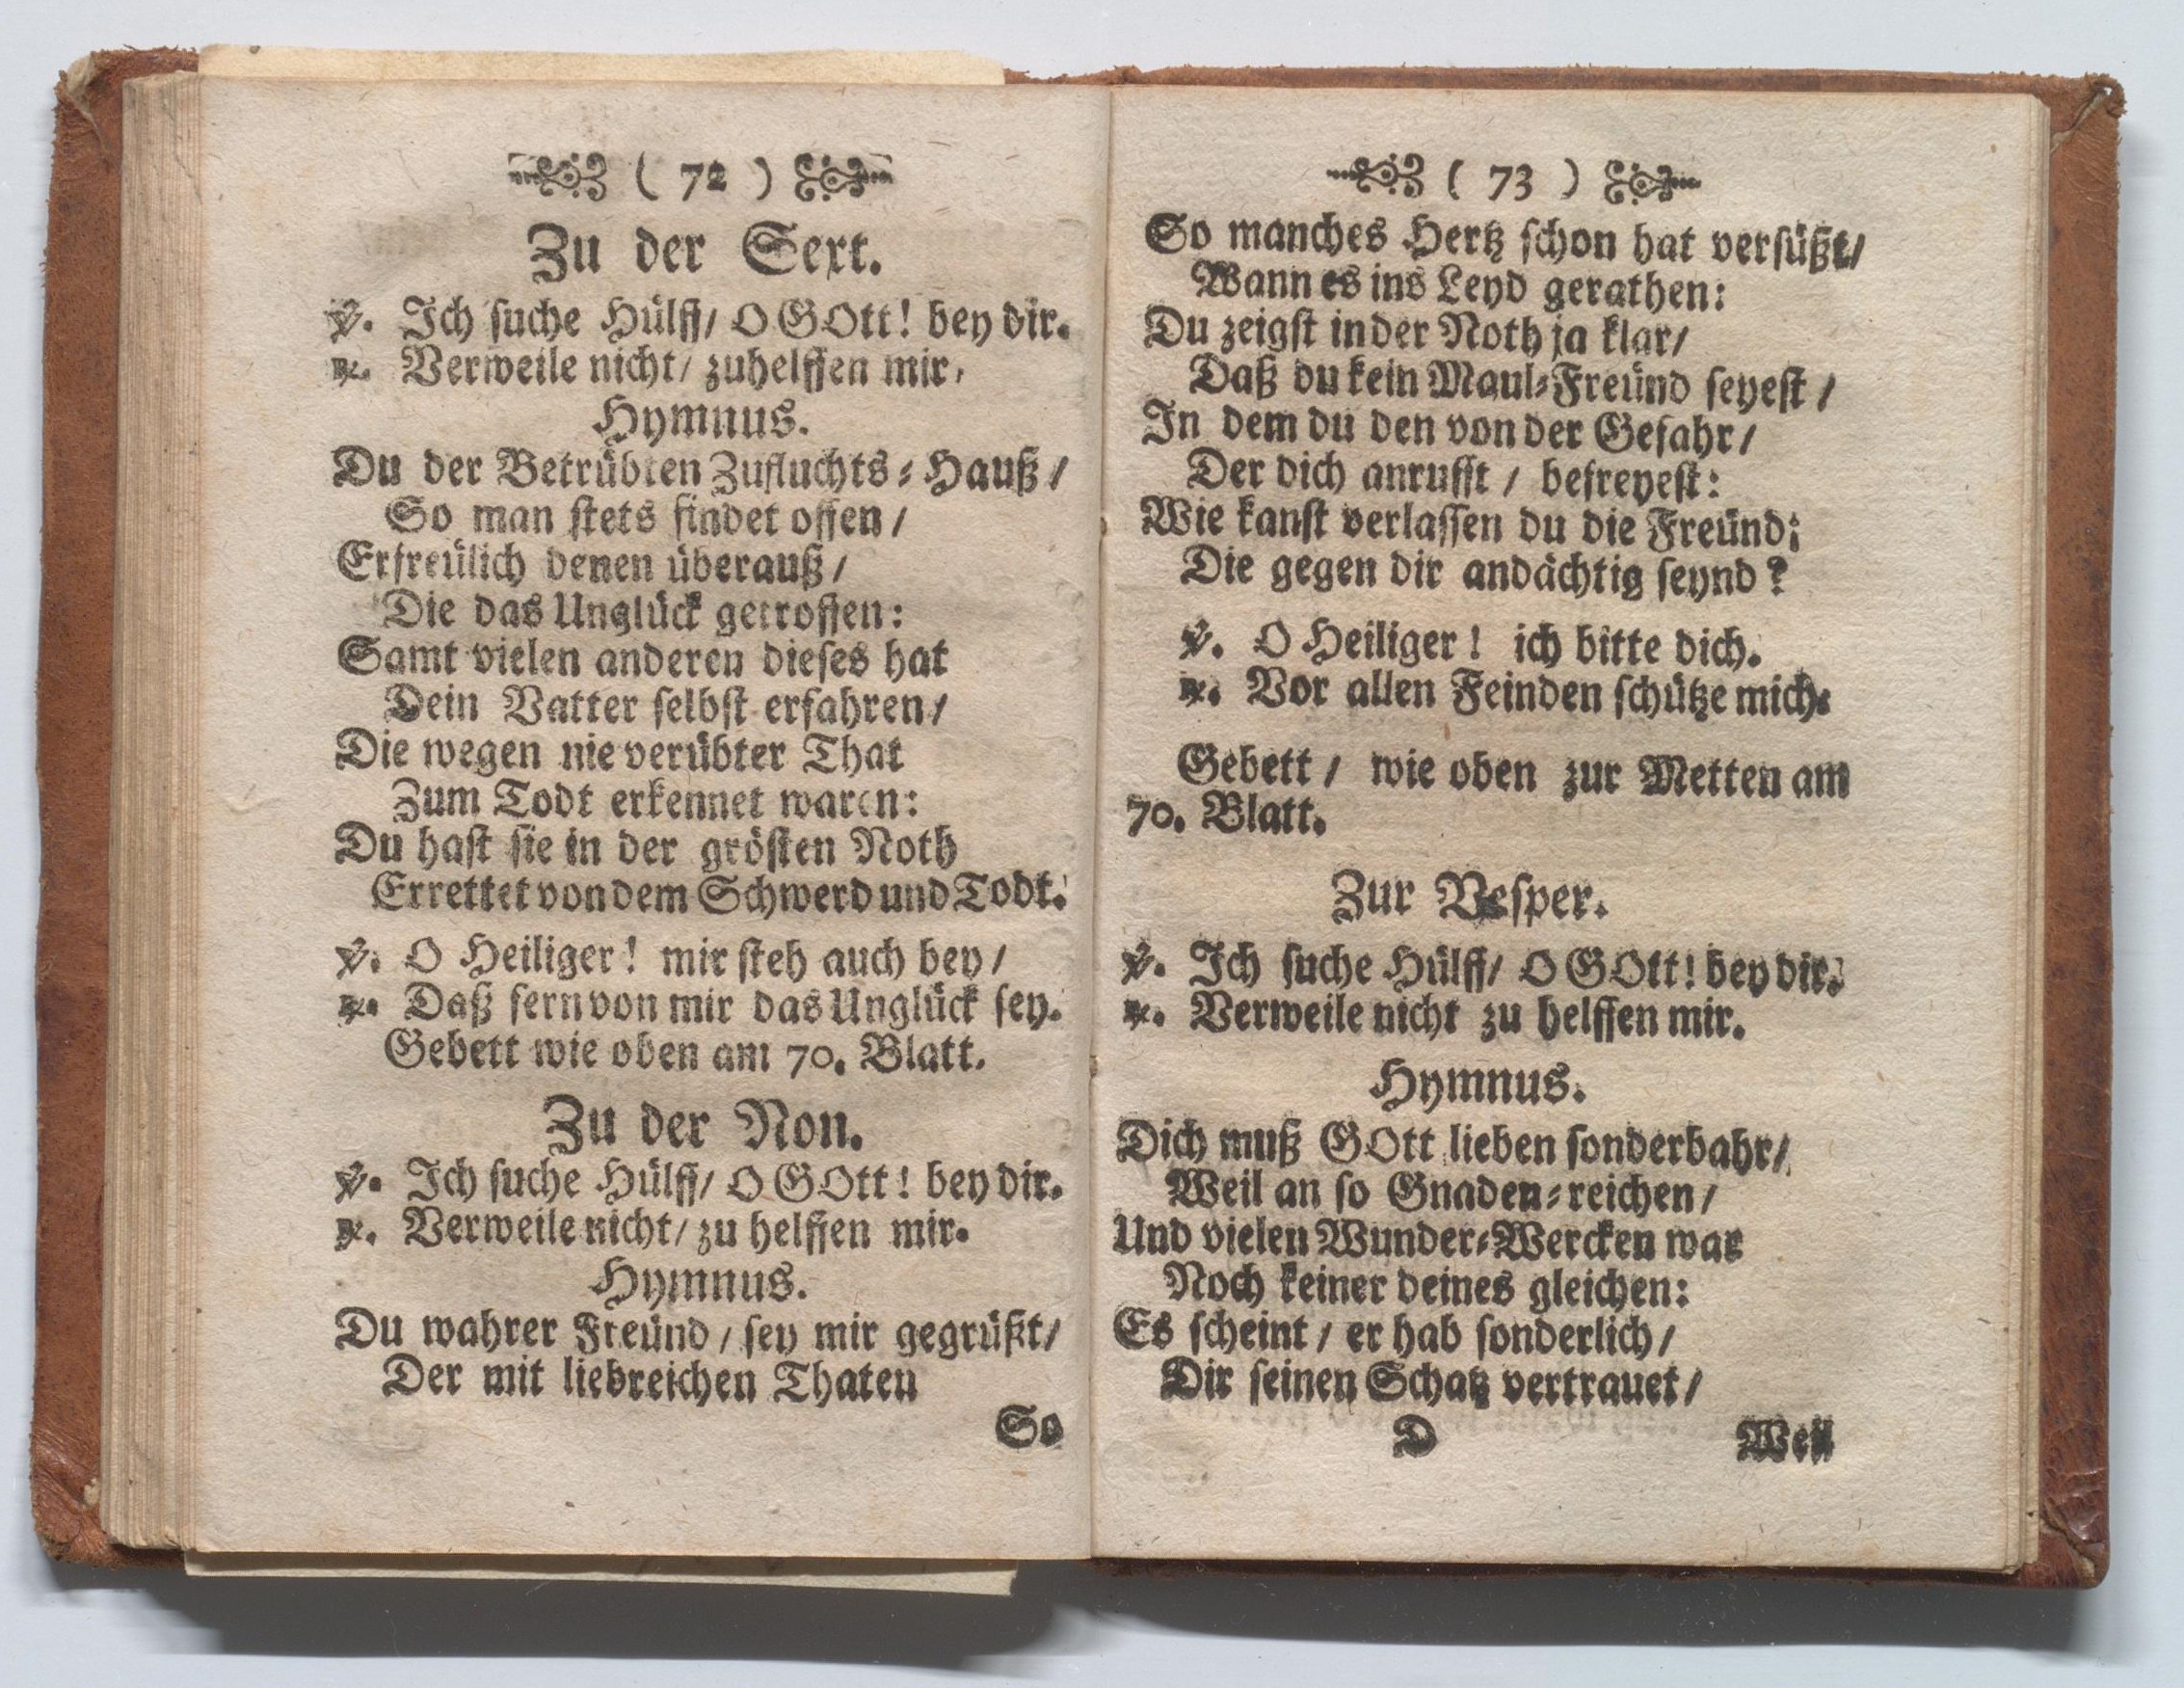 ( 72 )
Zu der Sext.
℣. Ich suche Hülff/ O GOtt! bey dir.
℟. Verweile nicht/ zuhelffen mir,
Hymnus.
Du der Betrübten Zufluchts-Hauß/
So man stets findet offen/
Erfreülich denen überauß/
Die das Unglück getroffen:
Samt vielen anderen dieses hat
Dein Vatter selbst erfahren/
Die wegen nie verübter That
Zum Todt erkennet waren:
Du hast sie in der grösten Noth
Errettet von dem Schwerd und Todt.
℣. O Heiliger! mir steh auch bey/
℟. Daß fern von mir das Unglück sey.
Gebett wie oben am 70. Blatt.
Zu der Non.
℣. Ich suche Hülff/ O GOtt! bey dir.
℟. Verweile nicht/ zu helffen mir.
Hymnus.
Du wahrer Freünd/ sey mir gegrüßt/
Der mit liebreichen Thaten
So
( 73 )
So manches Hertz schon hat versüßt/
Wann es ins Leyd gerathen:
Du zeigst in der Noth ja klar/
Daß du kein Maul-Freünd seyest/
In dem du den von der Gefahr/
Der dich anrufft/ befreyest:
Wie kanst verlassen du die Freünd;
Die gegen dir andächtig seynd?
℣. O Heiliger! ich bitte dich.
℟. Vor allen Feinden schütze mich.
Gebett/ wie oben zur Metten am
70. Blatt.
Zur Vesper.
℣. Ich suche Hülff/ O GOtt! bey dir.
℟. Verweile nicht zu helffen mir.
Hymnus.
Dich muß GOtt lieben sonderbahr/
Weil an so Gnaden-reichen/
Und vielen Wunder-Wercken war
Noch keiner deines gleichen:
Es scheint/ er hab sonderlich/
Dir seinen Schatz vertrauet/
D Weil